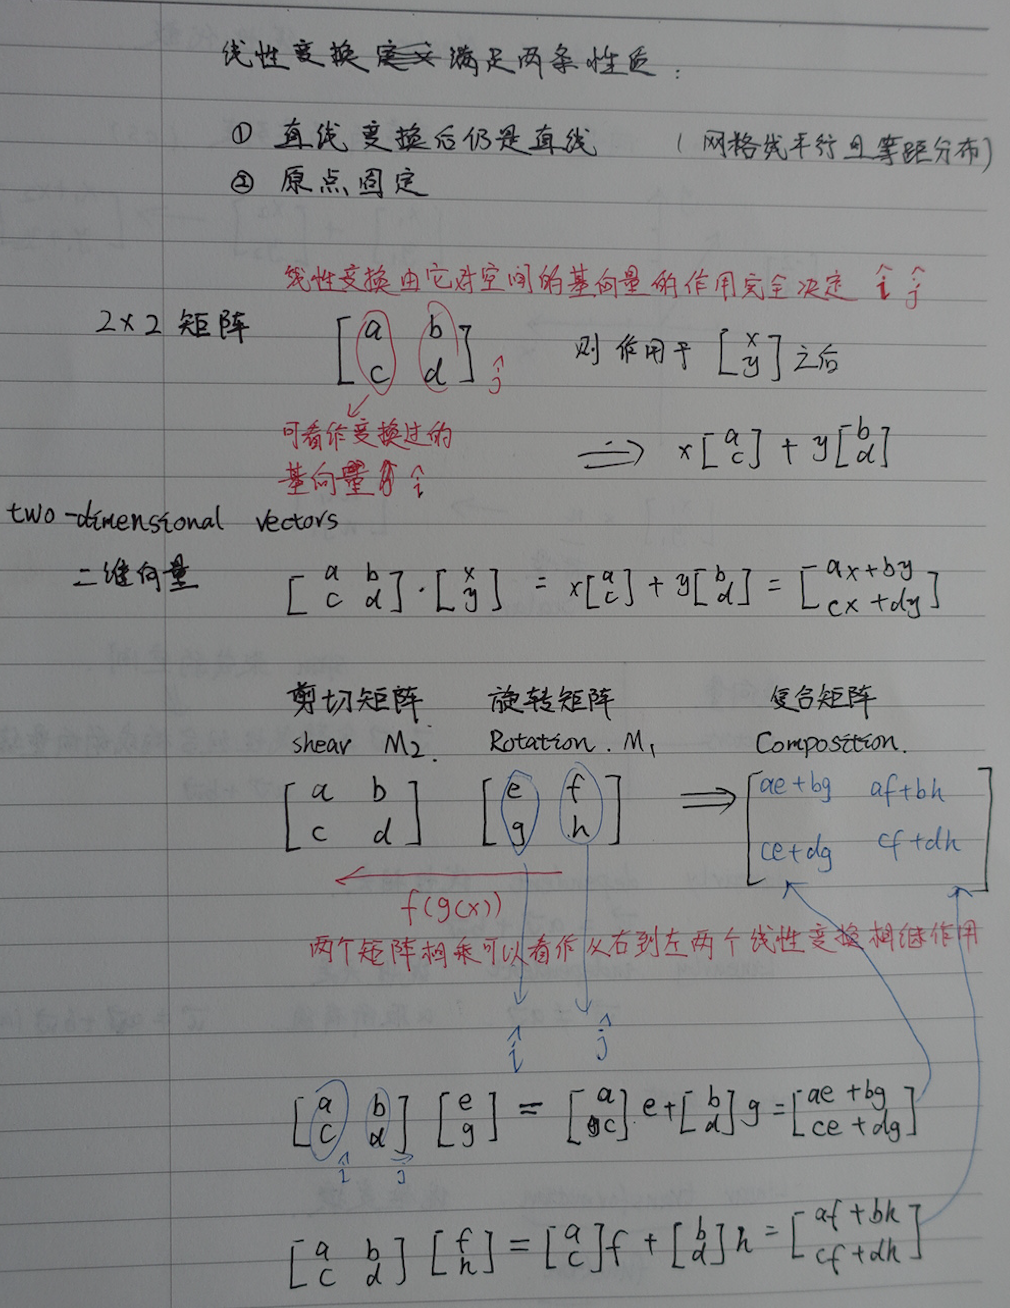 线性变换 满足两条性质：
① 直线变换后仍是直线 （网格线平行且等距分布）
② 原点固定
线性变换由它对空间的基向量的作用完全决定 î ĵ
2×2 矩阵 [a b; c d] ĵ 则作用于 [x; y] 之后
可看作变换过的
基向量 î
⇒ x[a; c] + y[b; d]
two-dimensional vectors
二维向量
[a b; c d]·[x; y] = x[a; c] + y[b; d] = [ax+by; cx+dy]
剪切矩阵 旋转矩阵 复合矩阵
shear M₂. Rotation. M₁ Composition.
[a b; c d] [e f; g h] ⇒ [ae+bg af+bh; ce+dg cf+dh]
f(g(x))
两个矩阵相乘可以看作从右到左两个线性变换相继作用
î ĵ
[a b; c d] [e; g] = [a; c]·e + [b; d]g = [ae+bg; ce+dg]
î j
[a b; c d] [f; h] = [a; c]f + [b; d]h = [af+bh; cf+dh]